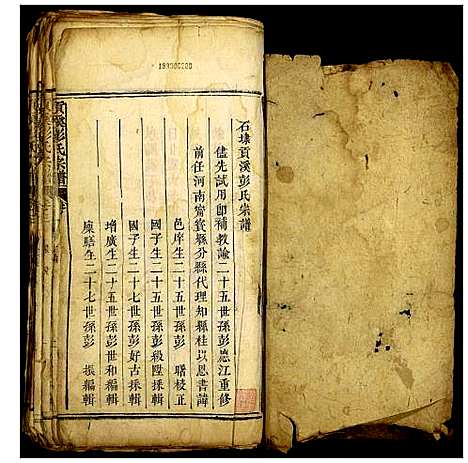 1933002ƷD
石埭貢溪彭氏宗譜
儘先試用卽補教諭二十五世孫彭慈江重修
前任河南甯賓縣分縣代理知縣桂以恩書諱
邑庠生二十五世孫彭 曙校正
國子生二十五世孫彭毅陞採輯
國子生二十七世孫彭好古採輯
增廣生二十五世孫彭世和編輯
廩膳生二十七世孫彭 振編輯
貢溪彭氏宗譜